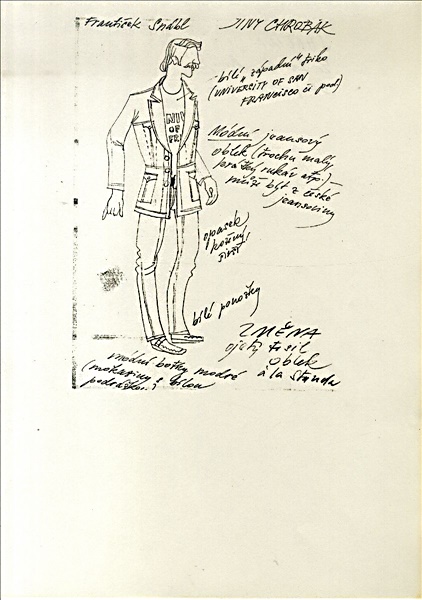 František Snábl
JINÝ CHROBÁK
bílé „západní" triko
(UNIVERSITY OF SAN
FRANCISCO či pod)
NIV
OF
FR
Módní jeansový
oblek (trochu malý
krátký rukáv atp.) –
může být z české
jeansoviny
opasek
kožený
širší
bílé ponožky
ZMĚNA
ojetý tesil
oblek
à la Standa
módní botky modré
(mokasíny s bílou
podrážkou)